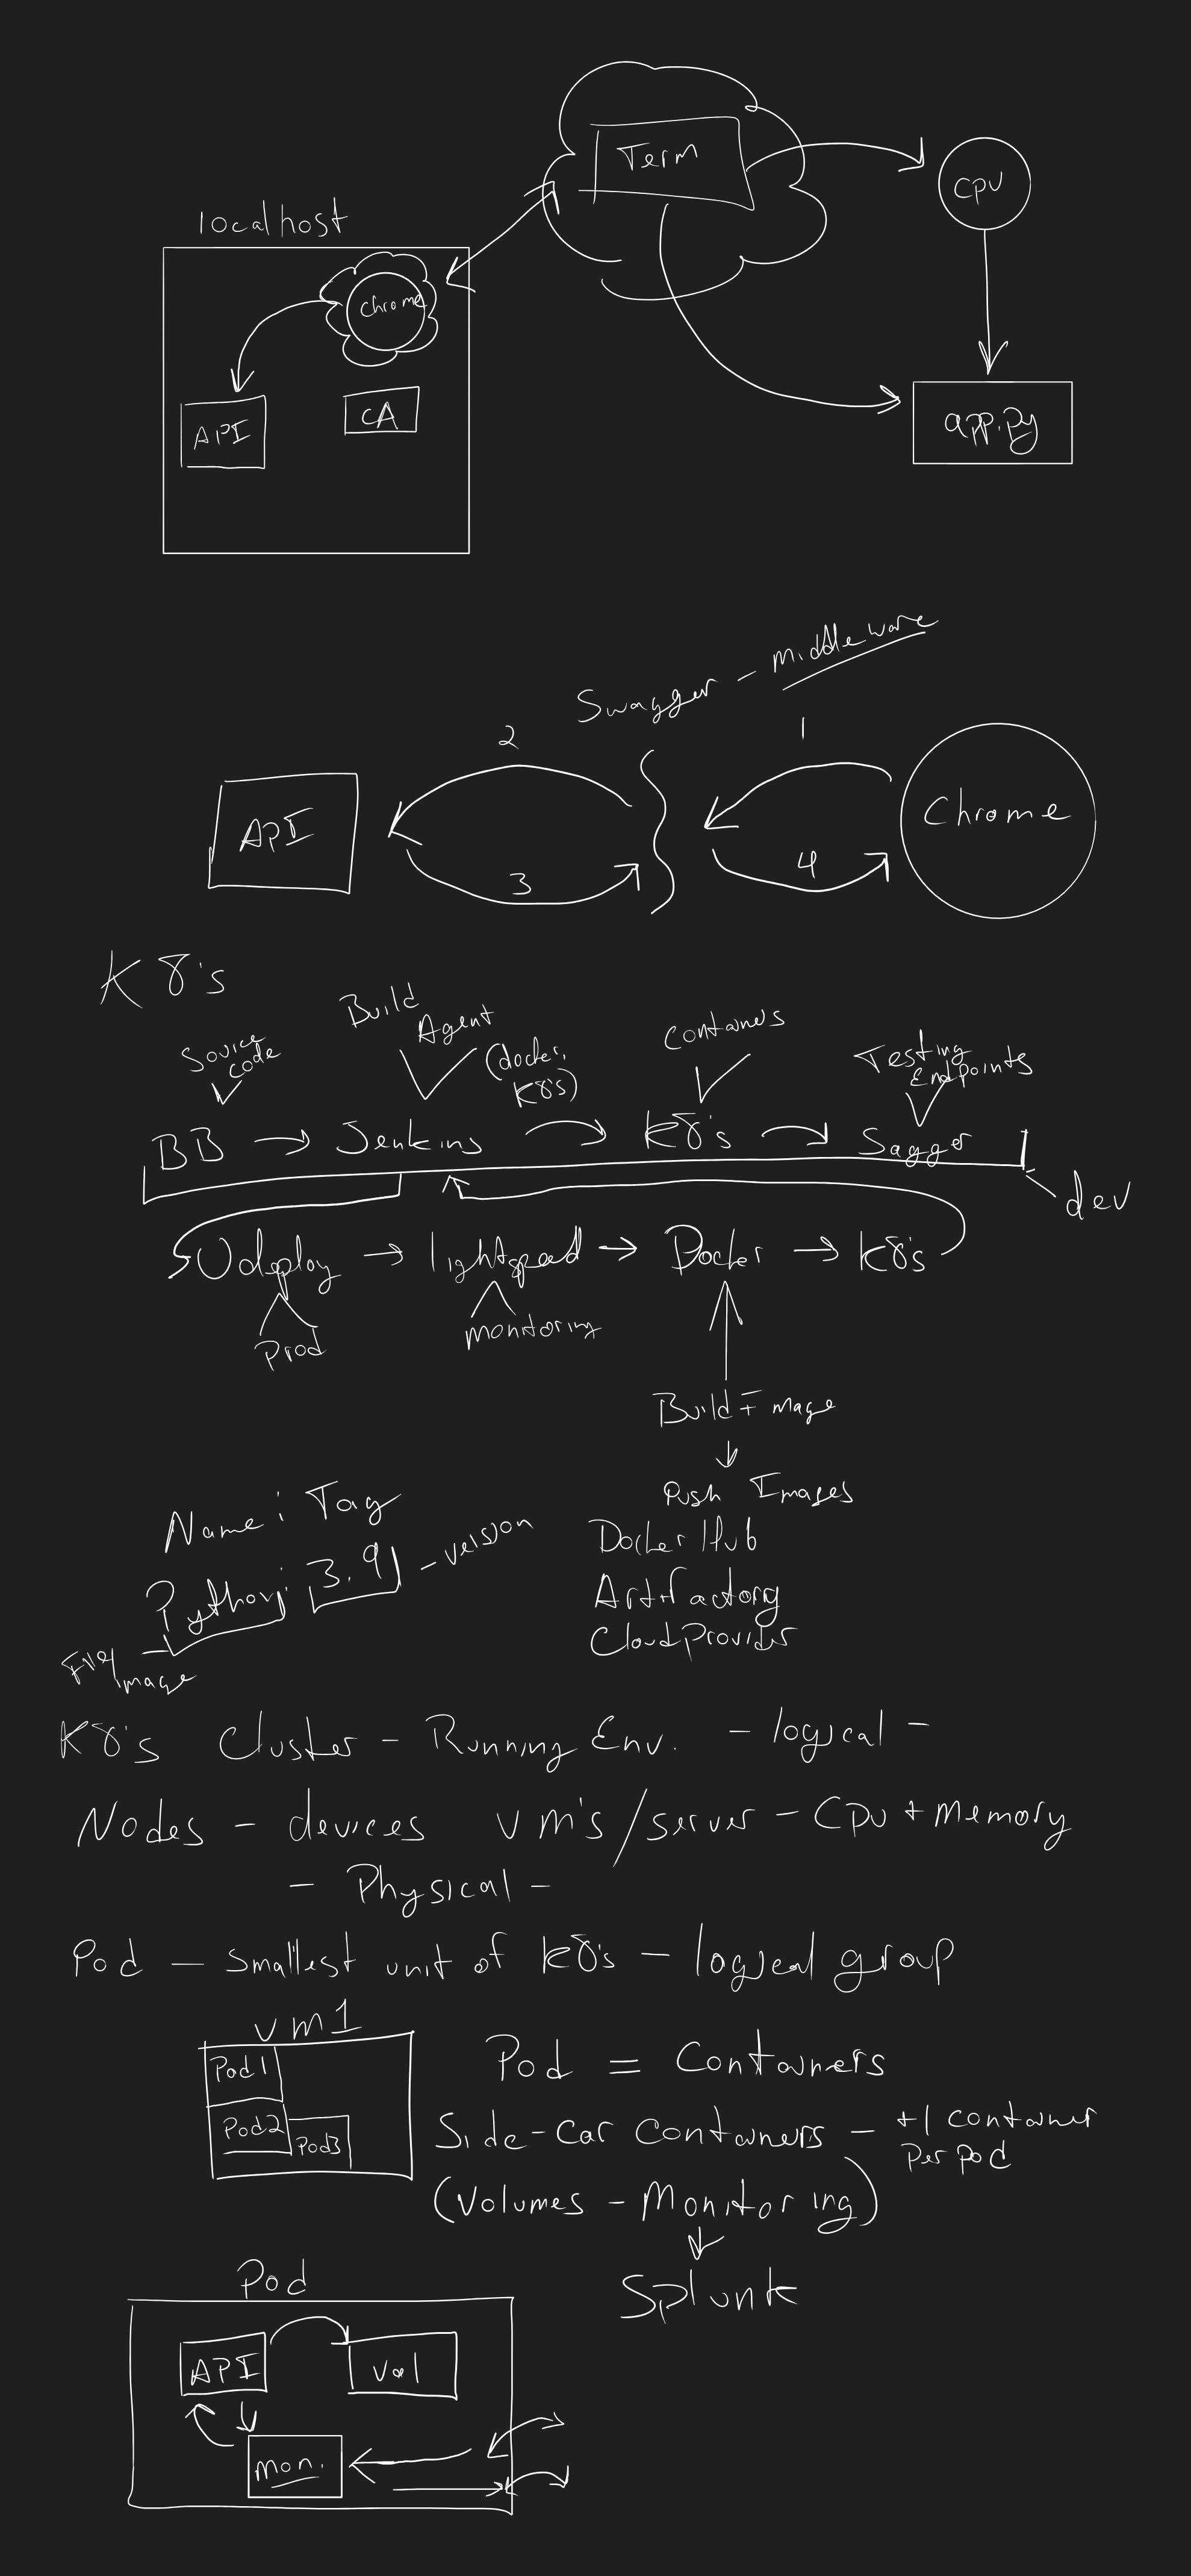 Term
CPU
localhost
Chrome
API
CA
app.py
Swagger - Middleware
2
1
API
Chrome
3
4
K8's
Source code
Build Agent
(docker, K8's)
Containers
Testing Endpoints
BB → Jenkins → K8's → Sagger
dev
Udeploy → lightspeed → Docker → K8's
Prod
monitoring
Build Image
↓
Push Images
Docker Hub
Artifactory
Cloud Provider
Name : Tag
Python : 3.9 - version
Image
K8's Cluster - Running Env. - logical -
Nodes - devices VM's/server - CPU + Memory
- Physical -
Pod - smallest unit of K8's - logical group
vm1
Pod1
Pod2
Pod3
Pod = Containers
Side-car Containers - +1 container per pod
(Volumes - Monitoring)
↓
Splunk
Pod
API
Val
mon.